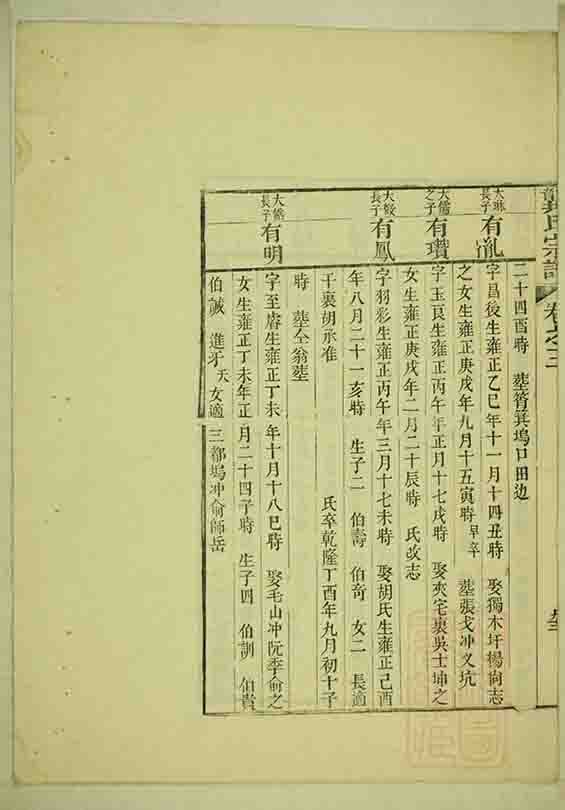 龔氏宗譜 卷之三
二十四酉時 葬筲箕塢口田边
大琳長子 有胤
字昌後生雍正乙巳年十一月十四丑時 娶獨木圩楊尙志
之女生雍正庚戌年九月十五寅時 早卒 葬張戈冲义坑
大儒之子 有瓚
字玉良生雍正丙午年正月十七戌時 娶夾宅裏吳士坤之
女生雍正庚戌年二月二十辰時 氏改志
長子 有鳳
字羽彩生雍正丙午年三月十七未時 娶胡氏生雍正己酉
年八月二十一亥時 生子二 伯壽 伯奇 女二 長適
干裏胡承准 氏卒乾隆丁酉年九月初十子
時 葬仝翁葬
長子 有明
字至睿生雍正丁未年十月十八巳時 娶毛山冲阮季俞之
女生雍正丁未年正月二十四子時 生子四 伯訓 伯貴
伯誠 進矛 夭 女適三都塢冲俞師岳